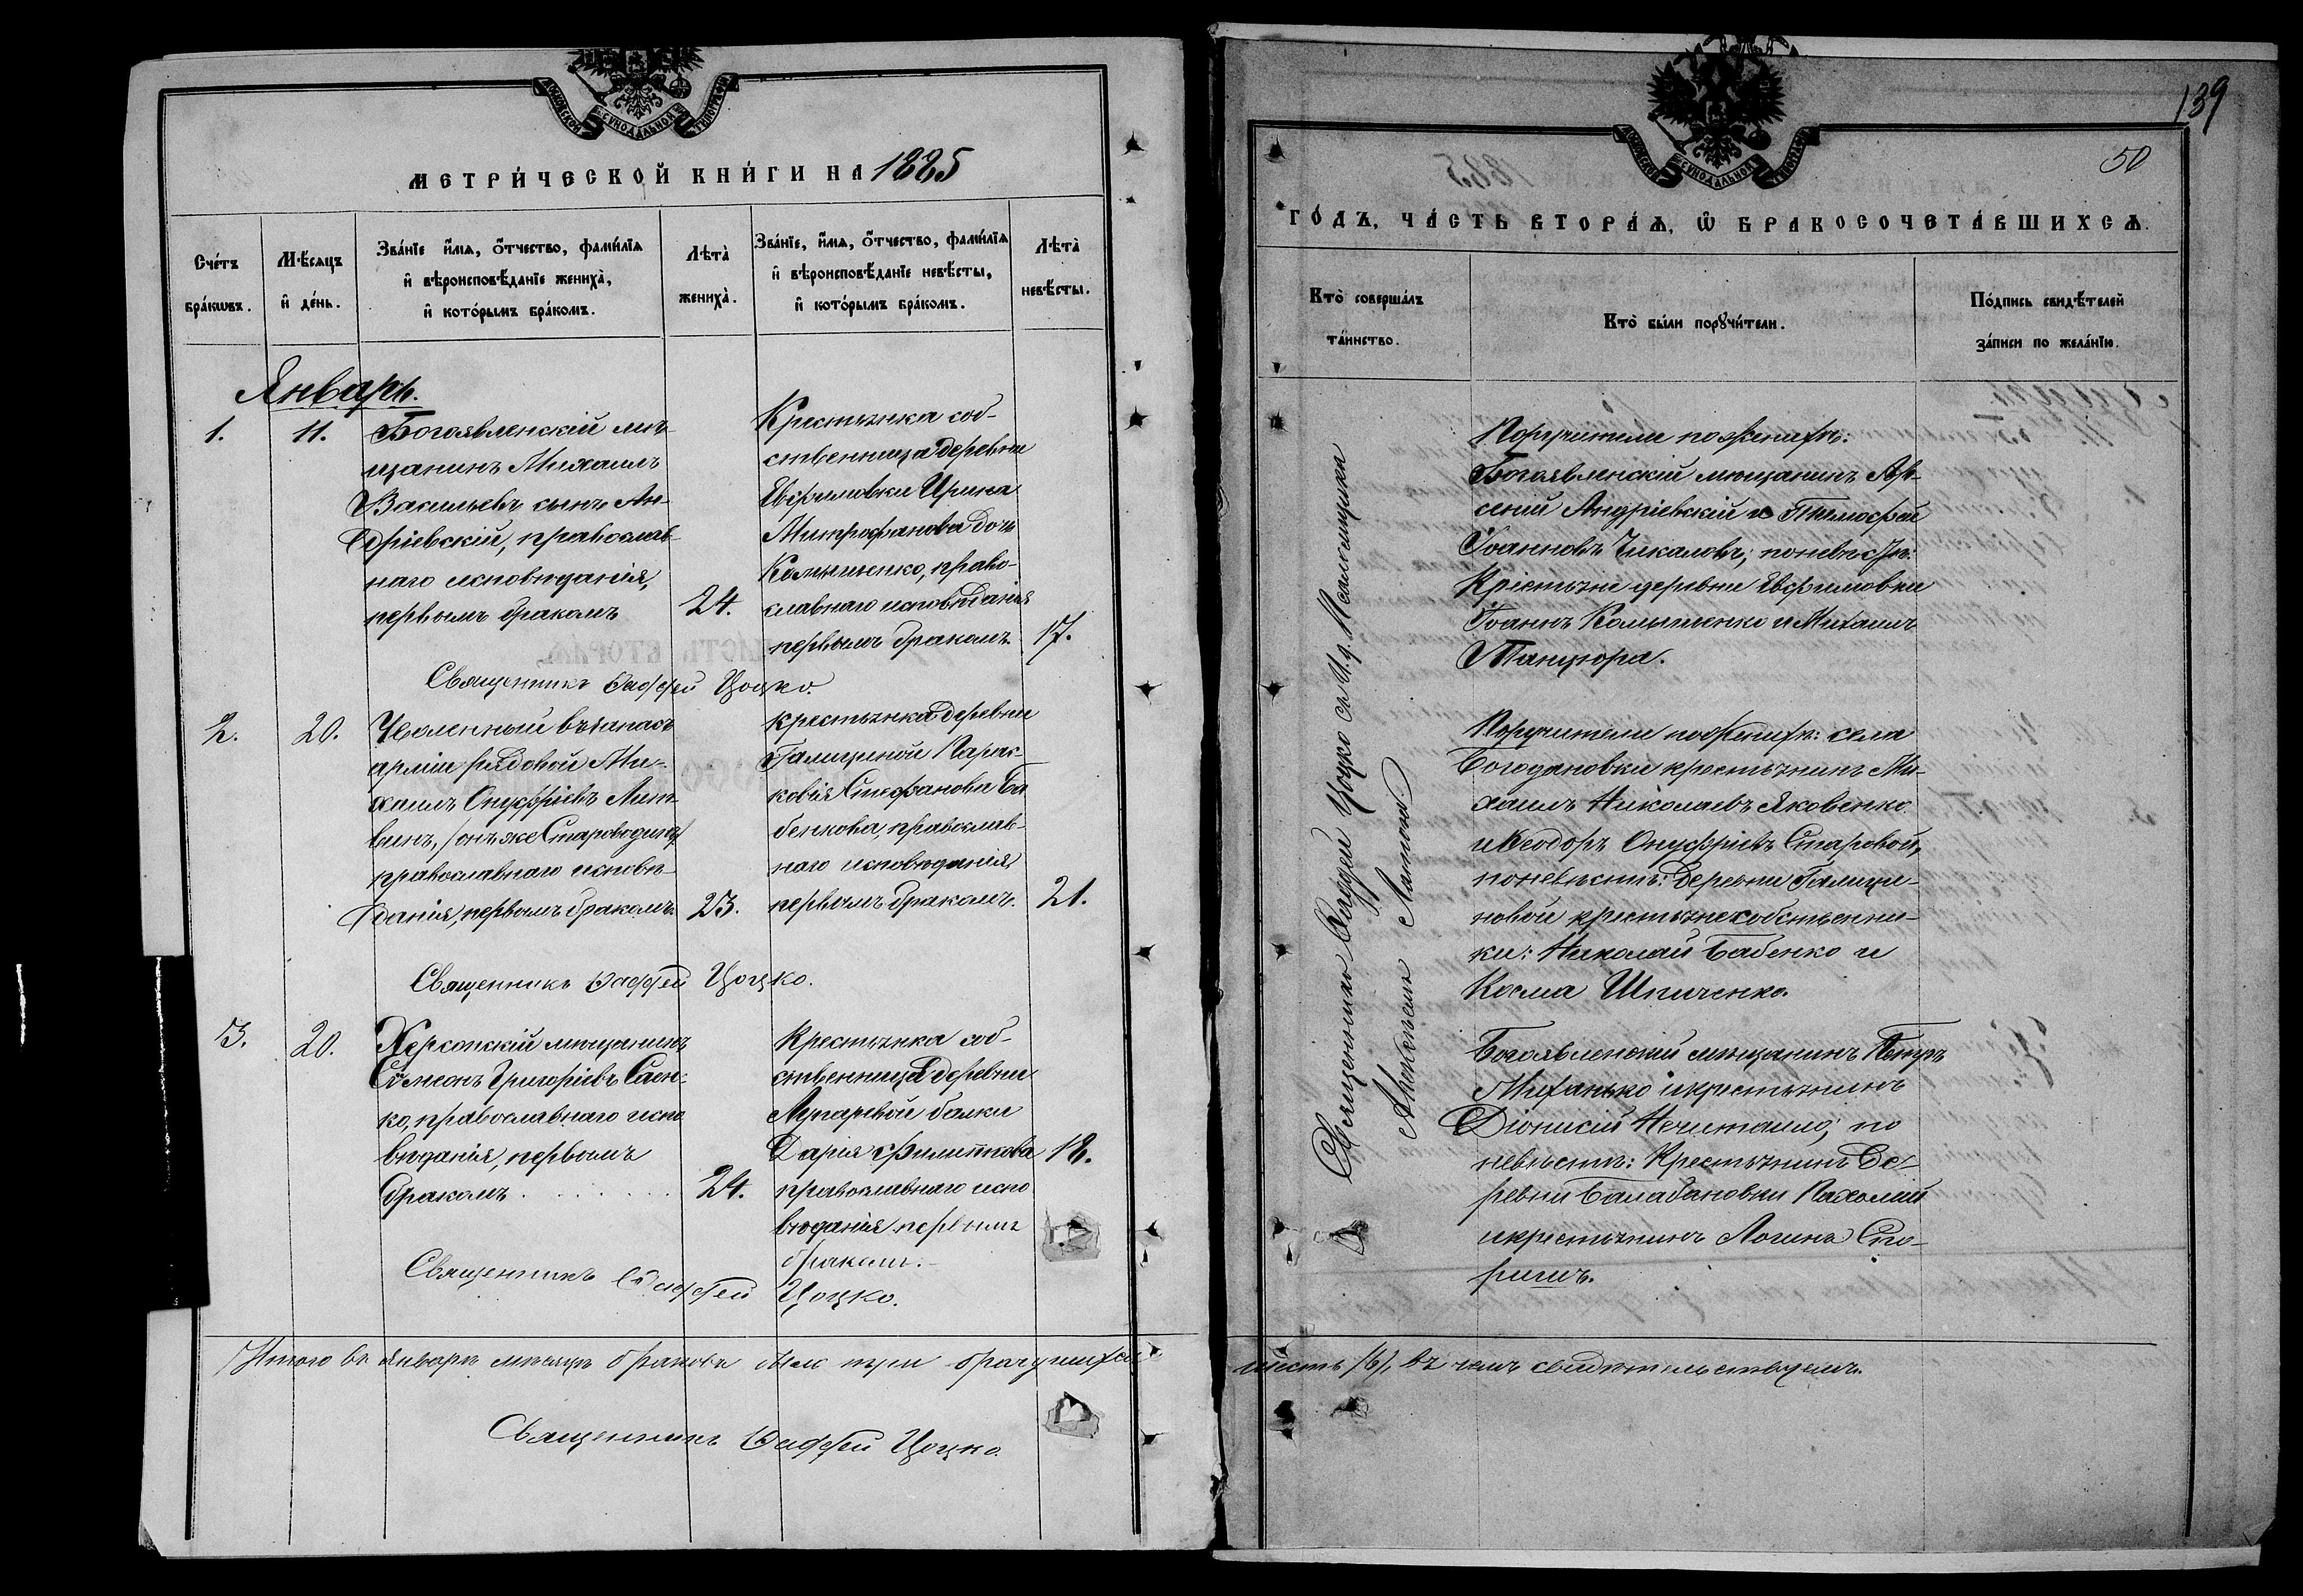 МОСКОВСКОЙ СѴНОДАЛЬНОЙ ТИПОГРАФІИ
МЕТРИ́ЧЕСКОЙ КНИ́ГИ НА 1885
Сче́тъ бра́кωвъ.
Мѣ́сяцъ и҆ де́нь.
Зва́нїе и҆́мѧ, о҆́тчество, фами́лїѧ
и҆ вѣроисповѣ́данїе женихà,
и҆ кото́рымъ бра́комъ.
Лѣ́тà женихà.
Зва́нїе, и҆́мѧ, о҆́тчество, фами́лїѧ
и҆ вѣроисповѣ́данїе невѣ́сты,
и҆ кото́рымъ бра́комъ.
Лѣ́тà невѣ́сты.
Январь.
1.
11.
Богоявленскій мѣ-
щанинъ Михаилъ
Васильевъ сынъ Ан-
дріевскій, православ-
наго исповѣданія,
первымъ бракомъ
24.
Крестьянка соб-
ственница деревни
Евфимовки Ирина
Митрофанова дочь
Камышенко, право-
славнаго исповѣданія
первымъ бракомъ
17.
Священникъ Фаддей Цоцко.
2.
20.
Уволенный въ запасъ
арміи рядовой Ми-
хаилъ Онуфріевъ Лит-
винъ, (онъ же Староводинъ)
православнаго исповѣ-
данія, первымъ бракомъ
23.
крестьянка деревни
Галицыной Парас-
ковія Стефанова Ба
бенкова, православ-
наго исповѣданія
первымъ бракомъ.
21.
Священникъ Фаддей Цоцко.
3.
20.
Херсонскій мѣщанинъ
Сѵмеонъ Григоріевъ Саен-
ко, православнаго испо
вѣданія, первымъ
бракомъ
24.
Крестьянка соб-
ственница деревни
Лупаревой балки
Дарія Филиппова
православнаго испо
вѣданія первымъ
бракомъ.
18.
Священникъ Фаддей Цоцко.
Итого въ январѣ мѣсяцѣ браковъ было три брачущихся
Священникъ Фаддей Цоцко.
139
50
МОСКОВСКОЙ СѴНОДАЛЬНОЙ ТИПОГРАФІИ
ГО́ДЪ, ЧА́СТЬ ВТОРА́Ѧ, Ѡ҆ БРАКОСОЧЕТА́ВШИХСѦ.
Кто̀ соверша́лъ
та́инство.
Кто̀ бы́ли порꙋчи́тели.
По́дпись свидѣ́телей
за́писи по жела́нїю.
Священникъ Фаддей Цоцко съ И. д. Псаломщика
Поручители по женихѣ:
Богоявленскій мѣщанинъ Ар-
сеній Андріевскій и Тимофей
Іоанновъ Чикаловъ; по невѣстѣ:
Крестьяне деревни Евфимовки
Іоаннъ Камышенко и Михаилъ
Танцюра.
Поручители по женихѣ: села
Богдановки крестьянинъ Ми-
хаилъ Николаевъ Яковенко
и Ѳеодоръ Онуфріевъ Старовой,
по невѣстѣ: деревни Галицы-
новой крестьяне собственни-
ки: Николай Бабенко и
Косма Шпиченко.
Богоявленскій мѣщанинъ Петръ
Миханько и крестьянинъ
Діонисій Нечитайло; по
невѣстѣ: Крестьянинъ де-
ревни Балабановки Пахомій
и крестьянинъ Логинъ Спо-
ришъ.
шесть (6), въ чемъ свидѣтельствуемъ.